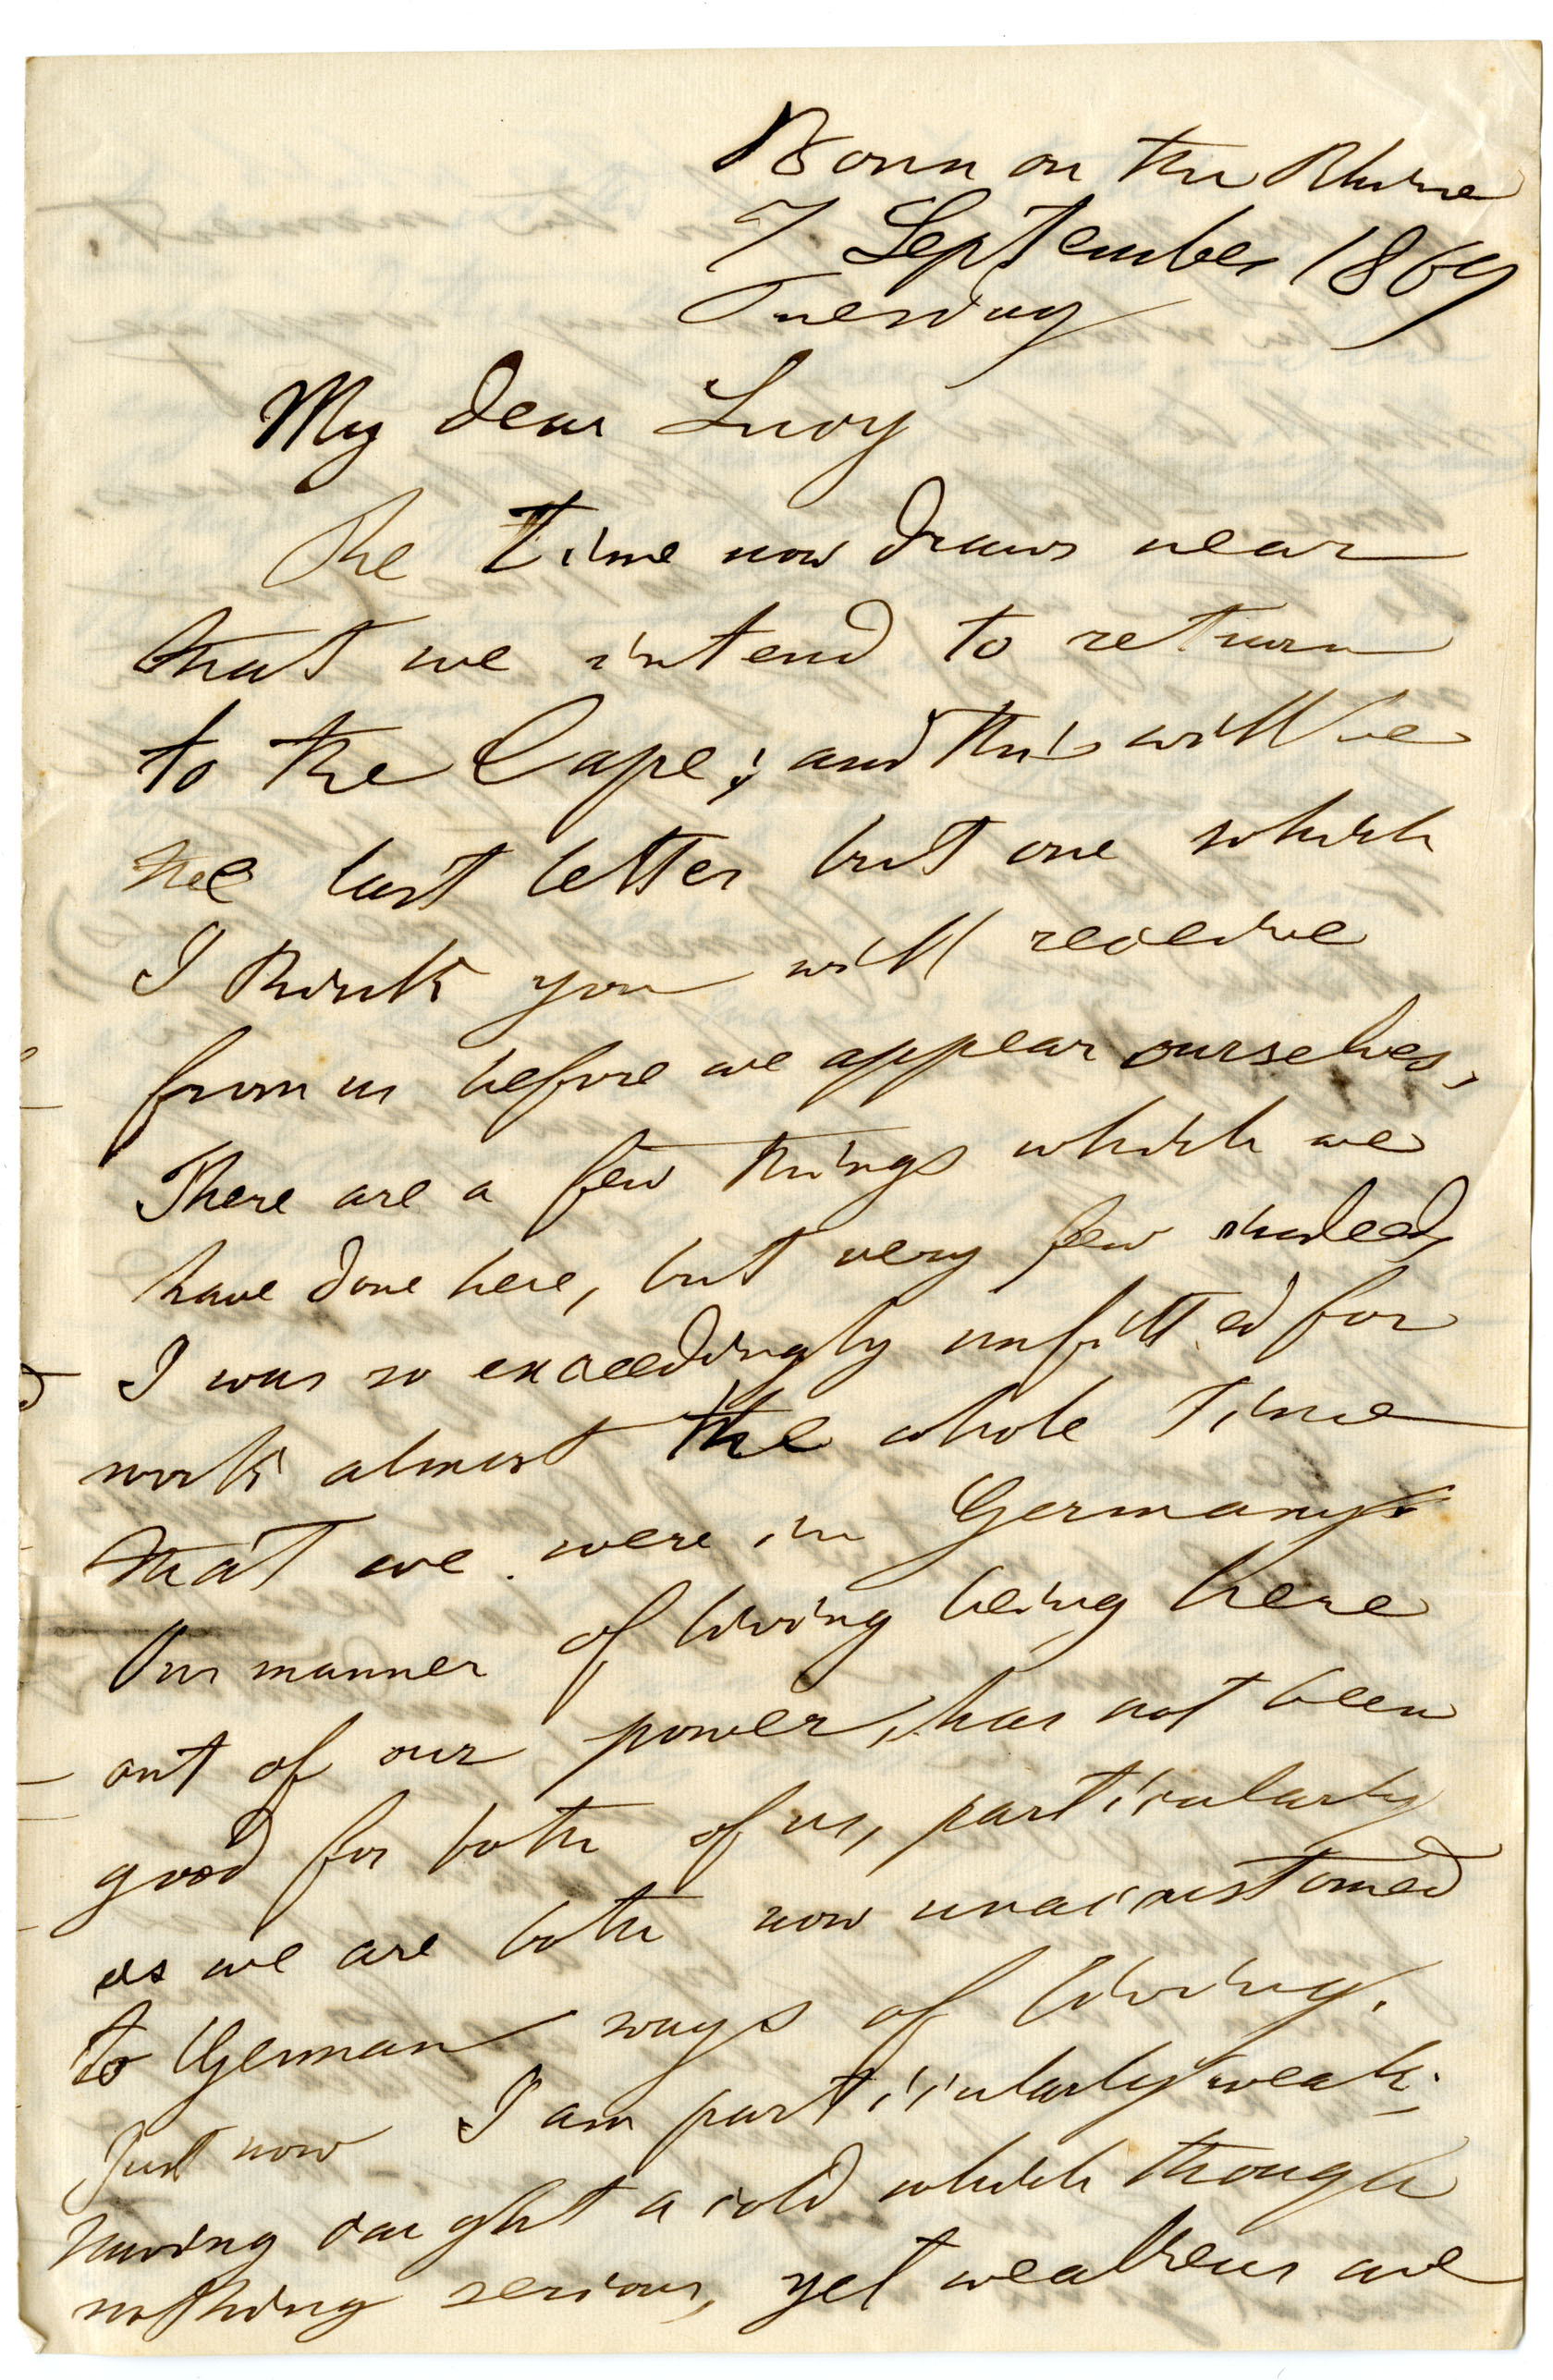 Bonn on the Rhine
7 September 1869
Tuesday
My dear Lucy
The time now draws near
that we intend to return
to the Cape; and this will be
the last letter but one which
I think you will receive
from us before we appear ourselves.
There are a few things which we
have done here, but very few indeed,
I was so exceedingly unfitted for
work almost the whole time
that we were in Germany.
Our manner of living being here
out of our power, has not been
good for both of us, particularly
as we are both now unaccustomed
to German ways of living.
Just now I am particularly weak.
having caught a cold which though
nothing serious, yet weakens me